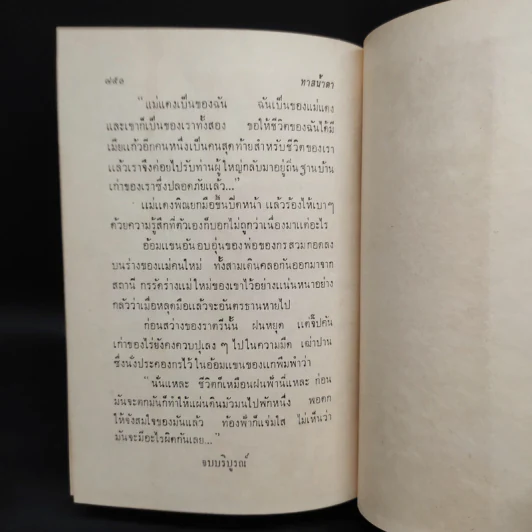 ๘๕๑ ทาสน้ำตา
"แม่แดงเป็นของฉัน ฉันเป็นของแม่แดง
และเขาก็เป็นของเราทั้งสอง ขอให้ชีวิตของฉันได้มี
เมียแก้วอีกคนหนึ่งเป็นคนสุดท้ายสำหรับชีวิตของเรา
แล้วเราจึงค่อยไปรับท่านผู้ใหญ่กลับมาอยู่ถิ่นฐานบ้าน
เก่าของเราซึ่งปลอดภัยแล้ว..."
แม่แดงพิณยกมือขึ้นปิดหน้า แล้วร้องไห้เบาๆ
ด้วยความรู้สึกที่ตัวเองก็บอกไม่ถูกว่าเนื่องมาแต่อะไร
อ้อมแขนอันอบอุ่นของพ่อของกรสวมกอดลง
บนร่างของแม่คนใหม่ ทั้งสามเดินคลอกันออกมาจาก
สถานี กรรัดร่างแม่ใหม่ของเขาไว้อย่างแน่นหนาอย่าง
กลัวว่าเมื่อหลุดมือแล้วจะอันตรธานหายไป
ก่อนสว่างของราตรีนั้น ฝนหยุด แต่จี๊ปคัน
เก่าของไร่ยังคงควบปุเลง ๆ ไปในความมืด เฒ่าปาน
ซึ่งนั่งประคองกรไว้ในอ้อมแขนของแกพึมพำว่า
"นั่นแหละ ชีวิตก็เหมือนฝนฟ้านี่แหละ ก่อน
มันจะตกมันก็ทำให้แผ่นดินมัวมนไปพักหนึ่ง พอตก
ให้จังสมใจของมันแล้ว ท้องฟ้าก็แจ่มใส ไม่เห็นว่า
มันจะมีอะไรผิดกันเลย..."
จบบริบูรณ์